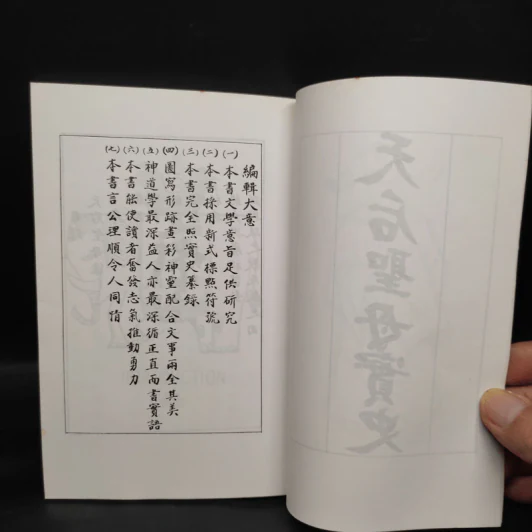 編輯大意
(一) 本書文學意旨足供研究
(二) 本書採用新式標點符號
(三) 本書完全照實史纂錄
(四) 圖寫形跡畫彩神靈配合文事兩全其美
(五) 神道學最深益人亦最深循正直而書實語
(六) 本書能使讀者奮發志氣推動勇力
(七) 本書言公理順令人同情
天后聖母實史